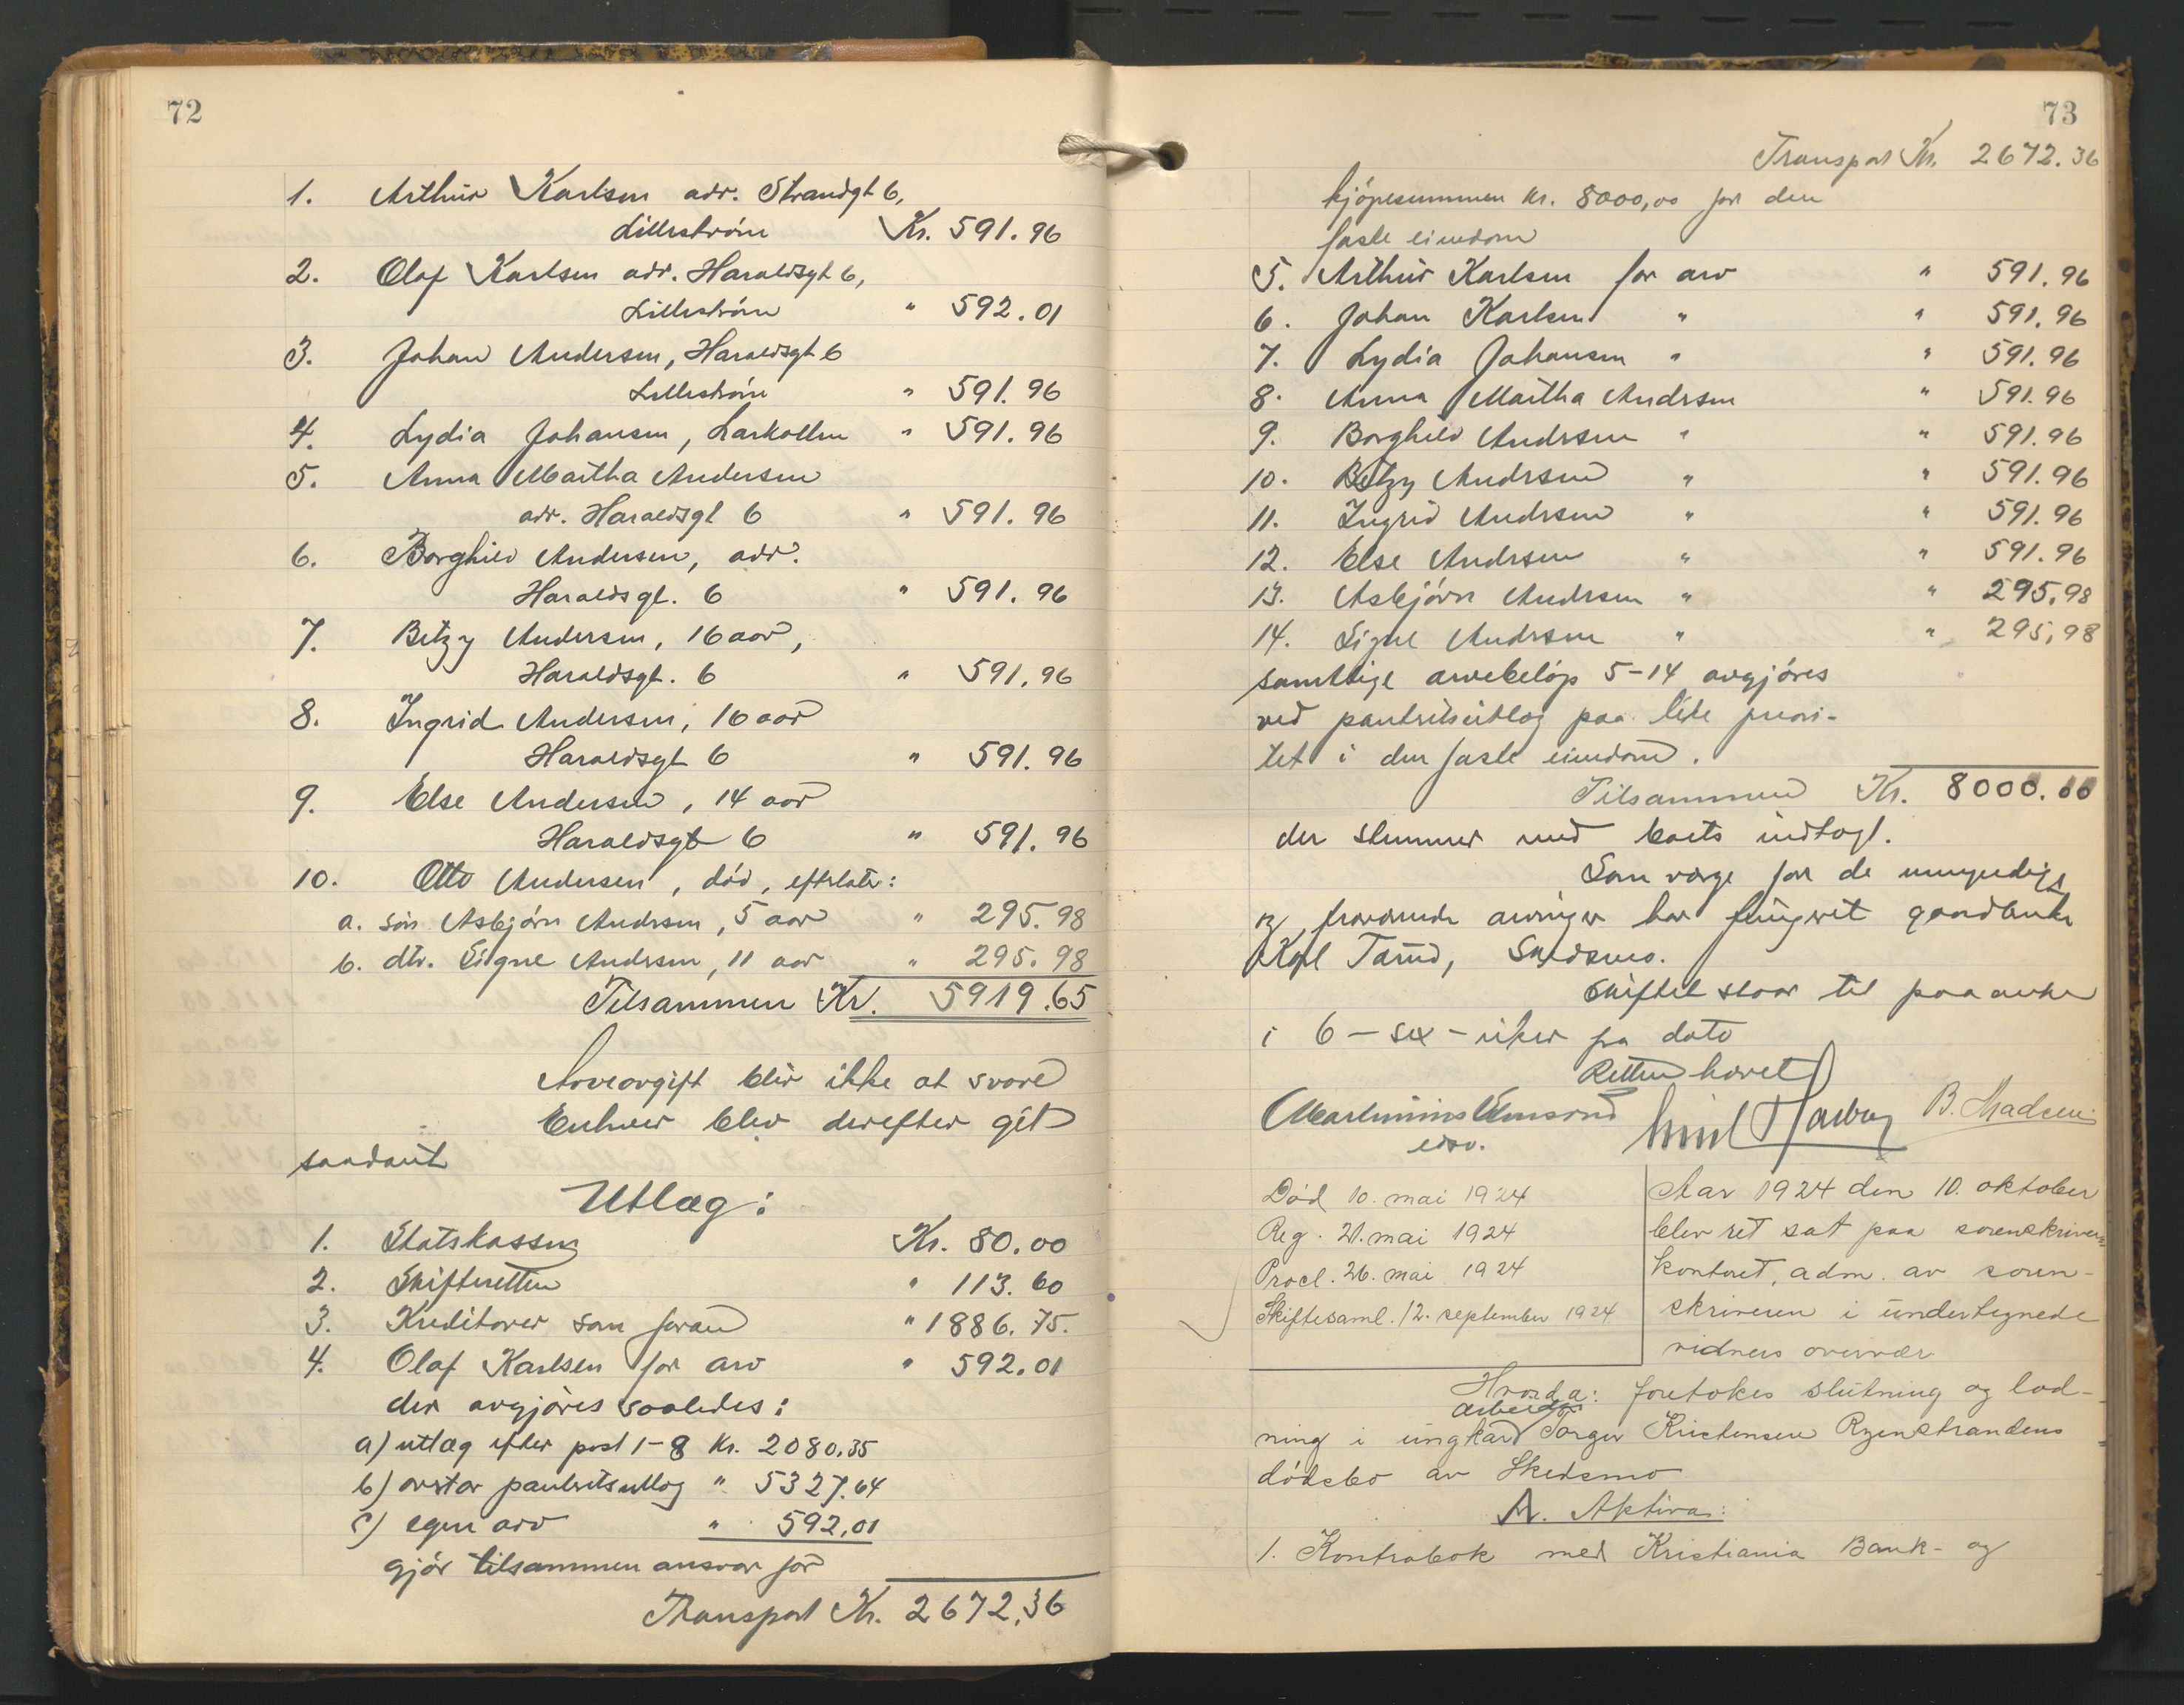 72
1. Arthur Karlsen adr. Strandgt 6,
Lillestrøm Kr. 591.96
2. Olaf Karlsen adr. Haraldsgt 6,
Lillestrøm " 592.01
3. Johan Andersen, Haraldsgt 6
Lillestrøm " 591.96
4. Lydia Johansen, Larkollen " 591.96
5. Anna Martha Andersen
adr. Haraldsgt 6 " 591.96
6. Borghild Andersen, adr.
Haraldsgt. 6 " 591.96
7. Betzy Andersen, 16 aar,
Haraldsgt. 6 " 591.96
8. Ingrid Andersen, 16 aar
Haraldsgt 6 " 591.96
9. Else Andersen, 14 aar
Haraldsgt 6 " 591.96
10. Otto Andersen, død, efterlater:
a. søn Asbjørn Andersen, 5 aar " 295.98
b. dtr. Signe Andersen, 11 aar " 295.98
Tilsammen Kr. 5919.65
Arveavgift blir ikke at svare
Enhver blev derefter git
saadant
Utlæg:
1. Statskassen Kr. 80.00
2. Skifteretten " 113.60
3. Kreditorer som foran " 1886.75.
4. Olaf Karlsen for arv " 592.01
der avgjøres saaledes:
a) utlæg efter post 1-8 Kr. 2080.35
b) avstar pantretsutlæg " 5327.64
c) egen arv " 592,01
gjør tilsammen ansvar for
Transport Kr. 2672,36
73
Transport Kr. 2672.36
kjøpesummen kr. 8000,00 for den
faste eiendom
5. Arthur Karlsen for arv " 591.96
6. Johan Karlsen " " 591.96
7. Lydia Johansen " " 591.96
8. Anna Martha Andersen " 591.96
9. Borghild Andersen " " 591.96
10. Betzy Andersen " " 591.96
11. Ingrid Andersen " " 591.96
12. Else Andersen " " 591.96
13. Asbjørn Andersen " " 295.98
14. Signe Andersen " " 295,98
samtlige arvebeløp 5-14 avgjøres
ved pantretsutlæg paa like priori-
tet i den faste eiendom.
Tilsammen Kr. 8000.00
der stemmer med boets indtægt.
Som værge for de umyndige
og fraværende arvinger har fungeret gaardbruker
Karl Tærud, Skedsmo.
Skiftet staar til paaanke
i 6 - sex - uker fra dato
Retten hævet
edsv.
B. Madsen
Død 10. mai 1924
Reg. 21. mai 1924
Procl. 26. mai 1924
Skiftesaml. 12. september 1924
Aar 1924 den 10. oktober
blev ret sat paa sorenskriver-
kontoret, adm. av soren-
skriveren i undertegnede
vidners overvær
Hvorda: foretokes slutning og lod-
arbeider
ning i ungkar Torger Kristensen Ryenstrandens
dødsbo av Skedsmo
A. Aktiva:
1. Kontrabok med Kristiania Bank- og